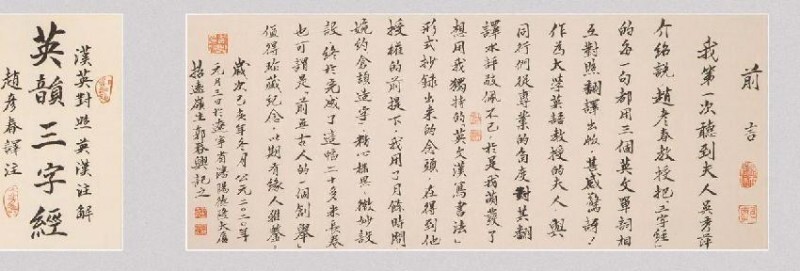 前言
我第一次聽到夫人吳
介紹說趙彥春教授把三字經
的每一句都用三個英文單詞相
互對照翻譯出版，甚感驚訝！
作為大學英語教授的夫人，與
同行們從專業的角度，對其翻
譯水評敬佩不已，於是我萌發了
想用我獨特的“英文漢寫書法”
形式抄錄出來的念頭，在得到他
授權的前提下，我用了月餘時間
造字，精心，微妙設
設，終於完成了這幅二十多米長卷
也可謂是“前無古人的一個創舉”
值得珍藏紀念，以期有緣人雅鑒。
歲次己亥年冬月公元二〇二〇年
元月三日於遼寧省瀋陽大廈
郭春興記之
漢英對照英漢注解
英韻三字經
趙彥春譯注